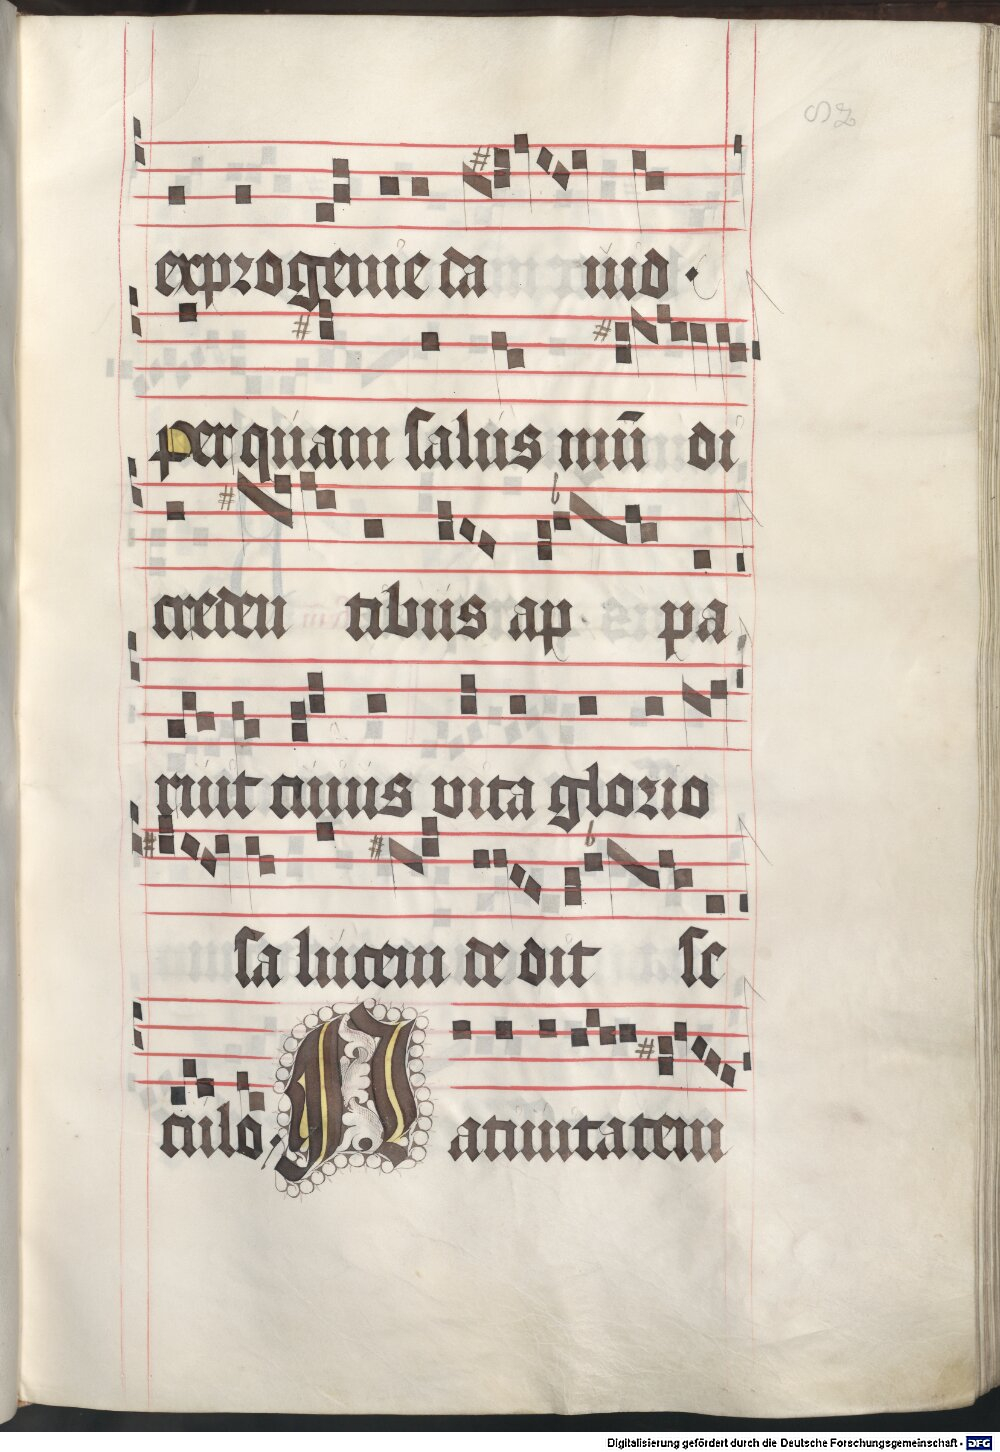 82
ex progenie da uid.
per quam salus mũ di
creden tibus ap pa
ruit cuius vita glorio
sa lucem de dit se
culo Natiuitatem
Digitalisierung gefördert durch die Deutsche Forschungsgemeinschaft - DFG